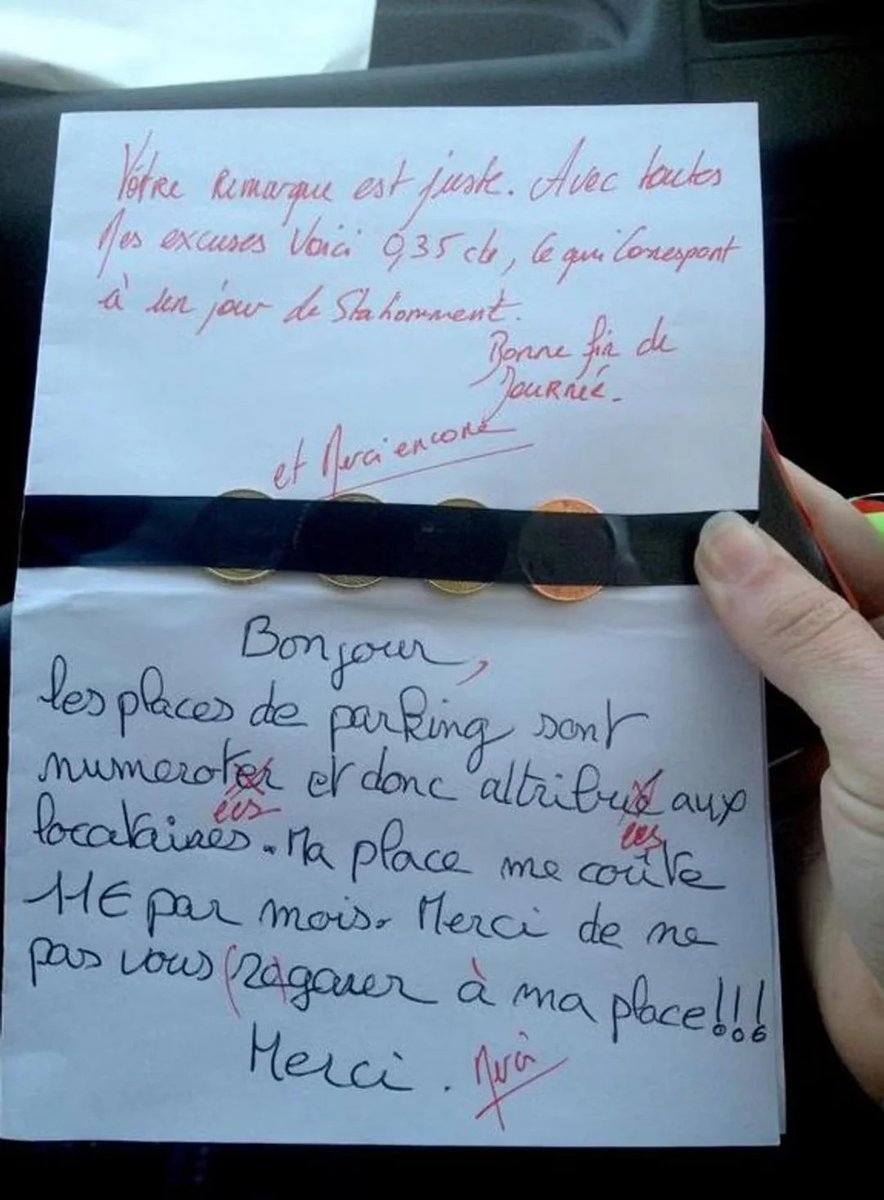 Vôtre remarque est juste. Avec toutes
Mes excuses Voici 0,35 cts, Ce qui Correspont
à un jour de Stationnement.
Bonne fin de
Journée.
et Merci encore
Bonjour,
les places de parking sont
numeroter et donc attribué aux
ées
ées
locataires. Ma place me coûte
11€ par mois. Merci de ne
pas vous (regarer à ma place!!!
Merci. Merci